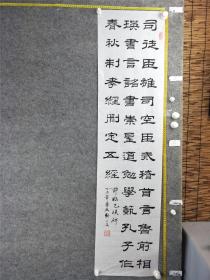 司徒臣雄司空臣戒稽首言魯前相
瑛書言詔書崇聖道勉學藝孔子作
春秋制孝經刪定五經
節臨乙瑛碑